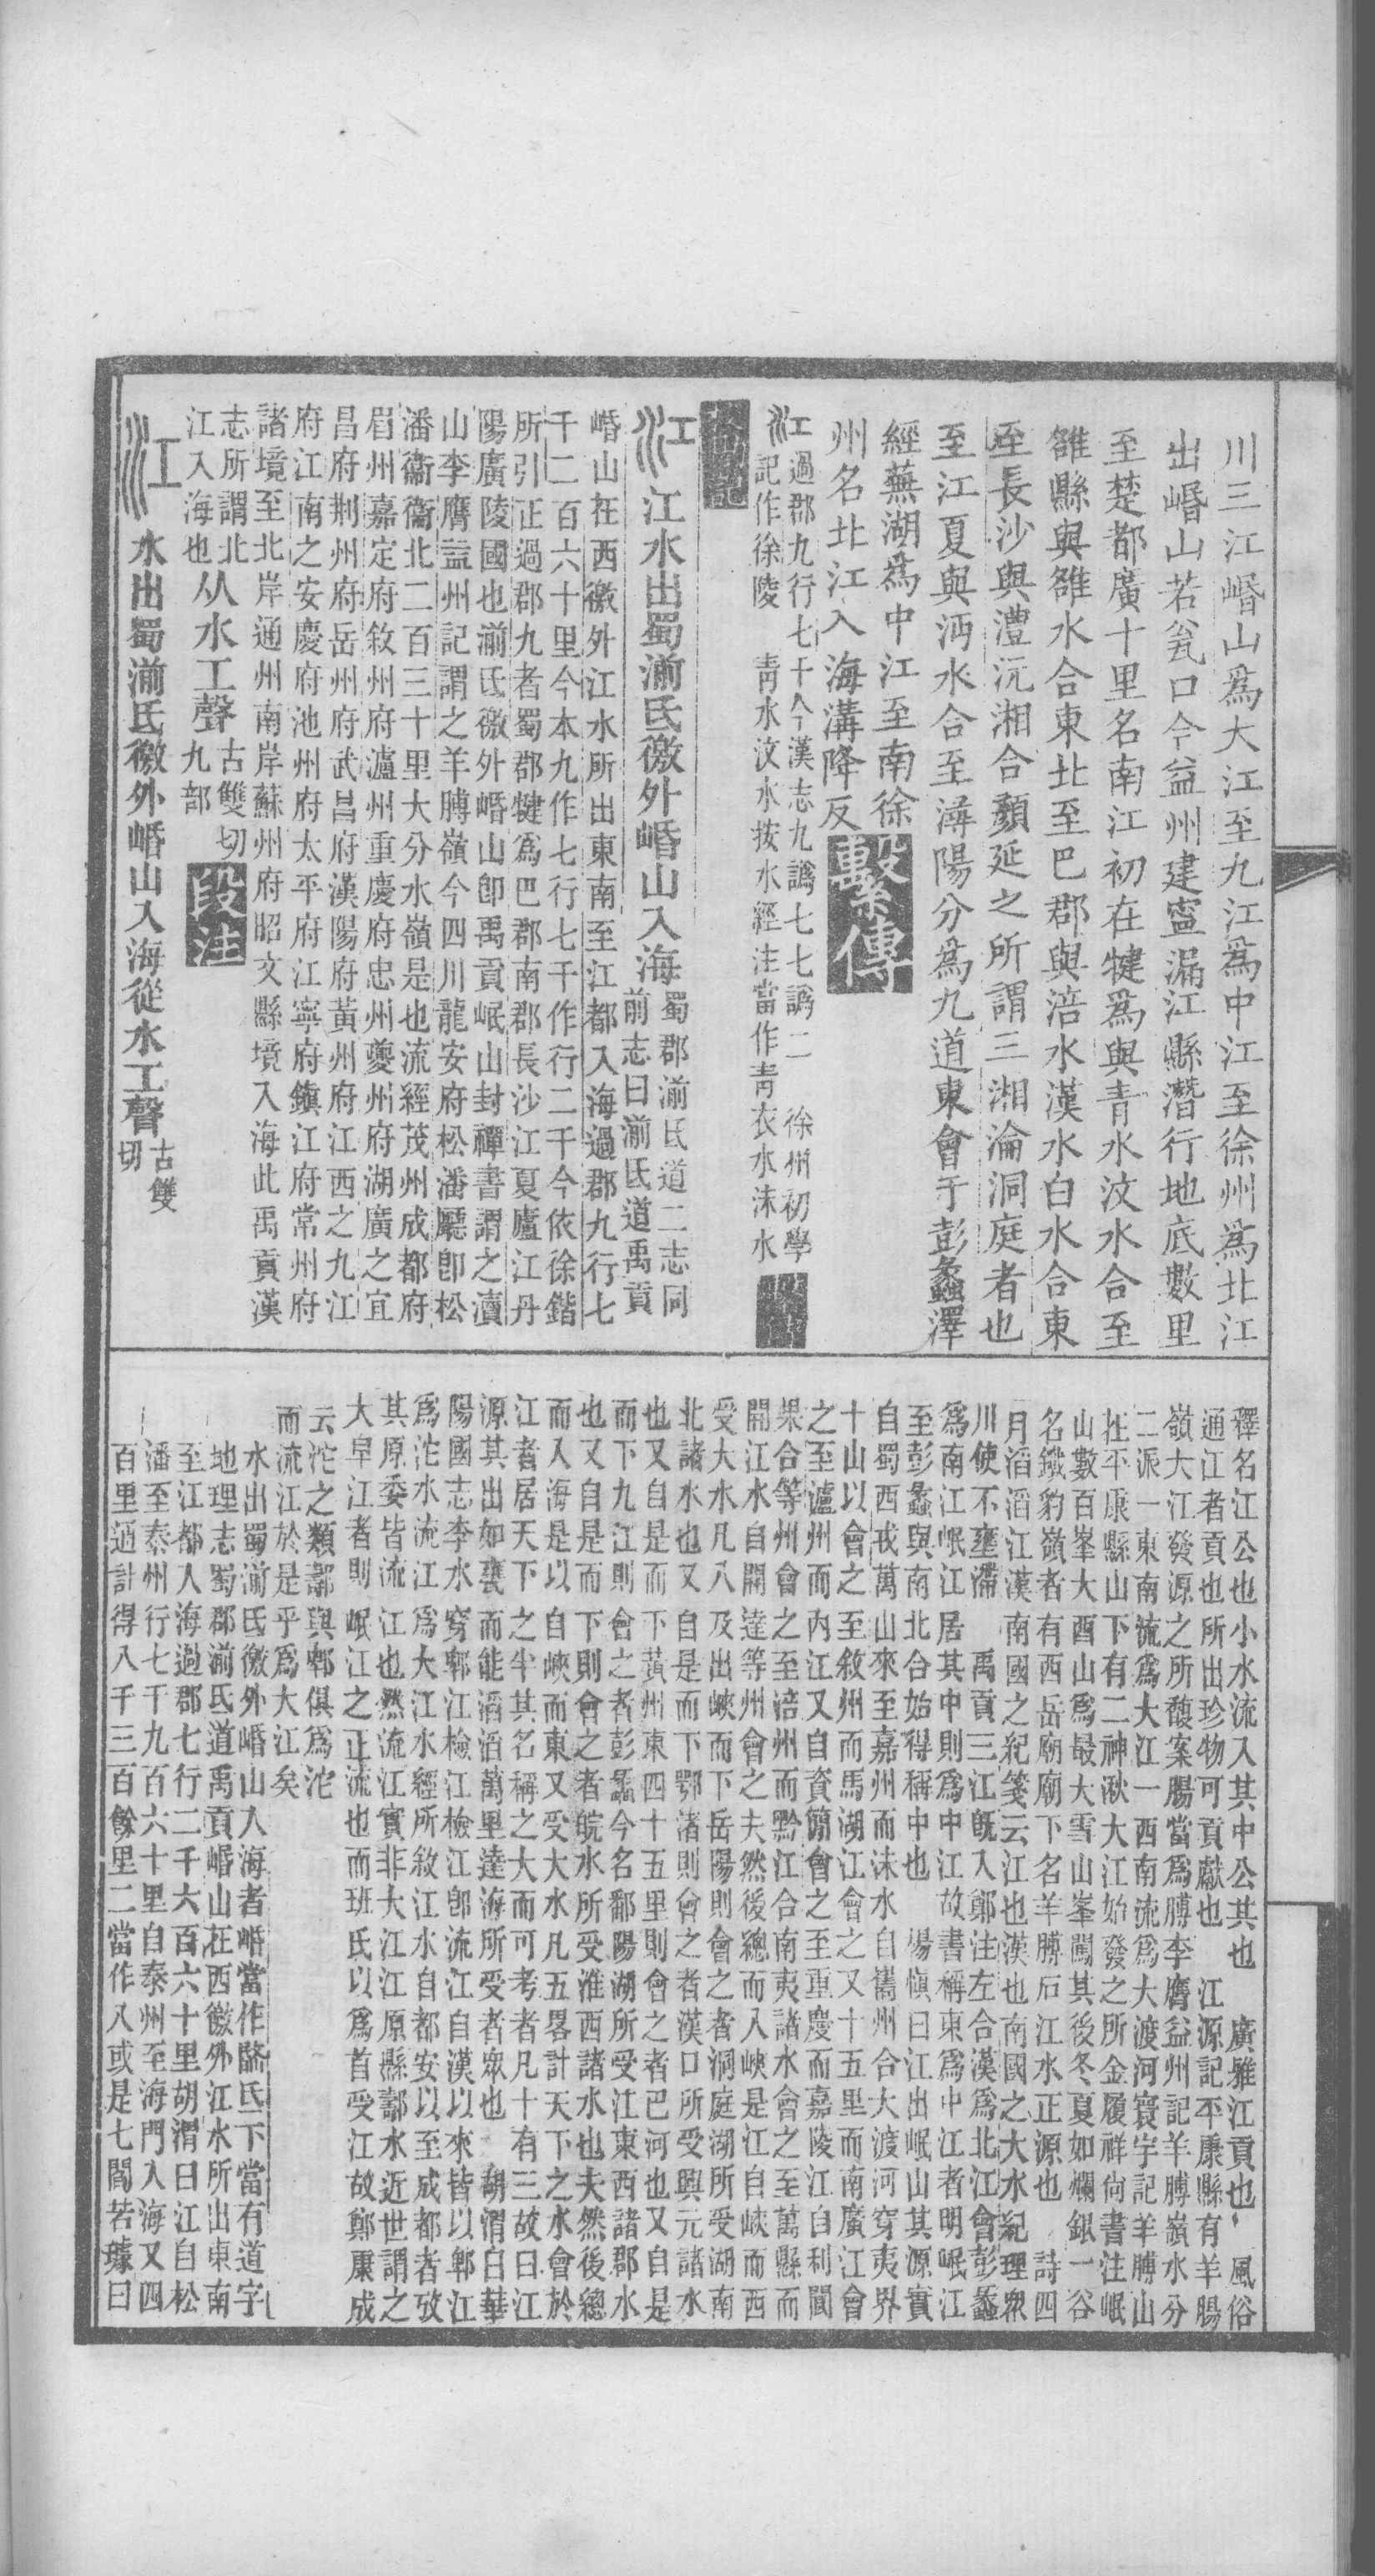 川三江㟭山爲大江至九江爲中江至徐州爲北江
出㟭山若瓮口今益州建寧漏江縣潛行地底數里
至楚都廣十里名南江初在犍爲與青水汶水合至
雒縣與雒水合東北至巴郡與涪水漢水白水合東
至長沙與澧沅湘合顏延之所謂三湘淪洞庭者也
至江夏與沔水合至潯陽分爲九道東會于彭蠡澤
經蕪湖爲中江至南徐
州名北江入海溝降反 繫傳
江 過郡九行七千今漢志九譌七七譌二 徐州初學
記作徐陵 青水汶水按水經注當作青衣水沬水
江 江水出蜀湔氐徼外㟭山入海 蜀郡湔氐道二志同
前志曰湔氐道禹貢
㟭山在西徼外江水所出東南至江都入海過郡九行七
千二百六十里今本九作七行七千作行二千今依徐鍇
所引正過郡九者蜀郡犍爲巴郡南郡長沙江夏廬江丹
陽廣陵國也湔氐徼外㟭山卽禹貢岷山封禪書謂之瀆
山李膺益州記謂之羊膊嶺今四川龍安府松潘廳卽松
潘衞衞北二百三十里大分水嶺是也流經茂州成都府
眉州嘉定府敘州府瀘州重慶府忠州夔州府湖廣之宜
昌府荆州府岳州府武昌府漢陽府黃州府江西之九江
府江南之安慶府池州府太平府江寧府鎭江府常州府
諸境至北岸通州南岸蘇州府昭文縣境入海此禹貢漢
志所謂北
江入海也 从水工聲 古雙切
九部 段注
江 水出蜀湔氐徼外㟭山入海從水工聲 古雙
切
釋名江公也小水流入其中公共也 廣雅江貢也 風俗
通江者貢也所出珍物可貢獻也 江源記平康縣有羊腸
嶺大江發源之所馥案腸當爲膊李膺益州記羊膊嶺水分
二派一東南流爲大江一西南流爲大渡河寰宇記羊膊山
在平康縣山下有二神湫大江始發之所金履祥尙書注岷
山數百峯大酉山爲最大雪山峯闖其後冬夏如爛銀一谷
名鐵豹嶺者有西岳廟廟下名羊膊石江水正源也 詩四
月滔滔江漢南國之紀箋云江也漢也南國之大水紀理衆
川使不壅滯 禹貢三江旣入鄭注左合漢爲北江會彭蠡
爲南江岷江居其中則爲中江故書稱東爲中江者明岷江
至彭蠡與南北合始得稱中也 楊愼曰江出岷山其源實
自蜀西戎萬山來至嘉州而沬水自巂州合大渡河穿夷界
十山以會之至敘州而馬湖江會之又十五里而南廣江會
之至瀘州而內江又自資簡會之至重慶而嘉陵江自利閬
果合等州會之至涪州而黔江合南夷諸水會之至萬縣而
開江水自開達等州會之夫然後總而入峽是江自峽而西
受大水凡八及出峽而下岳陽則會之者洞庭湖所受湖南
北諸水也又自是而下鄂渚則會之者漢口所受興元諸水
也又自是而下黃州東四十五里則會之者巴河也又自是
而下九江則會之者彭蠡今名鄱陽湖所受江東西諸郡水
也又自是而下則會之者皖水所受淮西諸水也夫然後總
而入海是以自峽而東又受大水凡五畧計天下之水會於
江者居天下之半其名稱之大而可考者凡十有三故曰江
源其出如甕而能滔滔萬里達海所受者眾也 胡渭曰華
陽國志李水穿郫江檢江檢江卽流江自漢以來皆以郫江
爲沱水流江爲大江水經所敘江水自都安以至成都者攷
其原委皆流江也然流江實非大江江原縣鄩水近世謂之
大皁江者則岷江之正流也而班氏以爲首受江故鄭康成
云沱之類鄩與郫俱爲沱
而流江於是乎爲大江矣
水出蜀湔氐徼外㟭山入海者㟭當作䃟氐下當有道字
地理志蜀郡湔氐道禹貢㟭山在西徼外江水所出東南
至江都入海過郡七行二千六百六十里胡渭曰江自松
潘至泰州行七千九百六十里自泰州至海門入海又四
百里通計得八千三百餘里二當作八或是七閻若璩曰